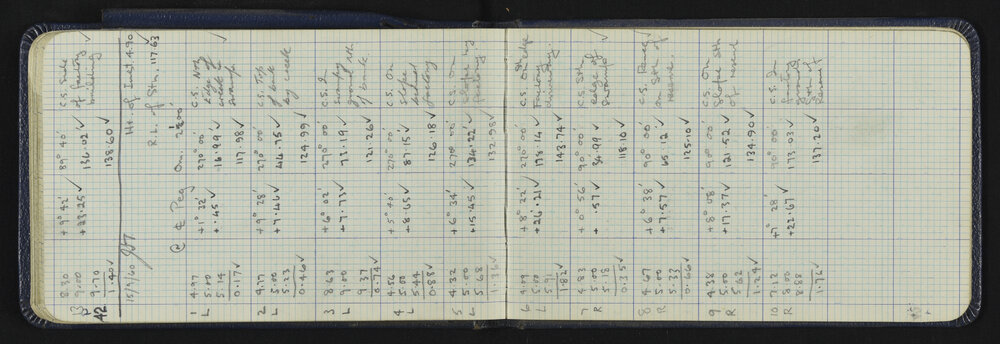 8.30 +9° 42' 89° 40' C.S. Side
13 9.00 +23.25 ✓ 136.02 ✓ of factory
9.70 138.60 ✓ building
42 1.40 ✓
15/9/60 Ht. of Inst. 4.90
R.L. of Stn. 117.63
@ ¢ Peg Om. 2800'
1 4.97 +1° 32' 270° 00' C.S. Nth
L 5.00 +.45 ✓ 16.99 ✓ Edge of
5.14 117.98 ✓ creek &
0.17 ✓ swamp ✓
2 4.77 +9° 28' 270° 00' C.S. Top
L 5.00 +7.46 ✓ 44.75 ✓ of bank
5.23 124.99 ✓ by creek
0.46 ✓
3 8.63 +6° 02' 270° 00' C.S. In
L 9.00 +7.73 ✓ 73.19 ✓ swampy
9.37 121.26 ✓ ground Nth
0.74 ✓ of bank
4 4.56 +5° 40' 270° 00' C.S. On
L 5.00 +8.65 ✓ 87.15 ✓ slope
5.44 126.18 ✓ behind
0.88 ✓ factory
5 4.32 +6° 34' 270° 00' C.S. On
L 5.00 +15.45 ✓ 134.22 ✓ slope by
5.68 132.98 ✓ factory
1.36 ✓
6 4.09 +8° 22' 270° 00' C.S. On edge
L 5.00 +26.21 ✓ 178.14 ✓ Factory
5.91 143.74 ✓ driveway
1.82 ✓
7 4.83 +0° 56' 90° 00' C.S. Sth.
R 5.00 +.57 ✓ 34.99 ✓ edge of
5.18 118.10 ✓ swamp
0.35 ✓
8 4.67 +6° 38' 90° 00' C.S.
R 5.00 +7.57 ✓ 65.12 ✓ on Sth of
5.33 125.10 ✓ reserve
0.66 ✓
9 4.38 +8° 08' 90° 00' C.S. On
R 5.00 +17.37 ✓ 121.52 ✓ slope Sth
5.62 134.90 ✓ of reserve
1.24 ✓
10 7.12 +7° 28' 90° 00' C.S. In
R 8.00 +22.67 ✓ 173.03 ✓
8.88 137.20 ✓ Sth of
1.76 ✓